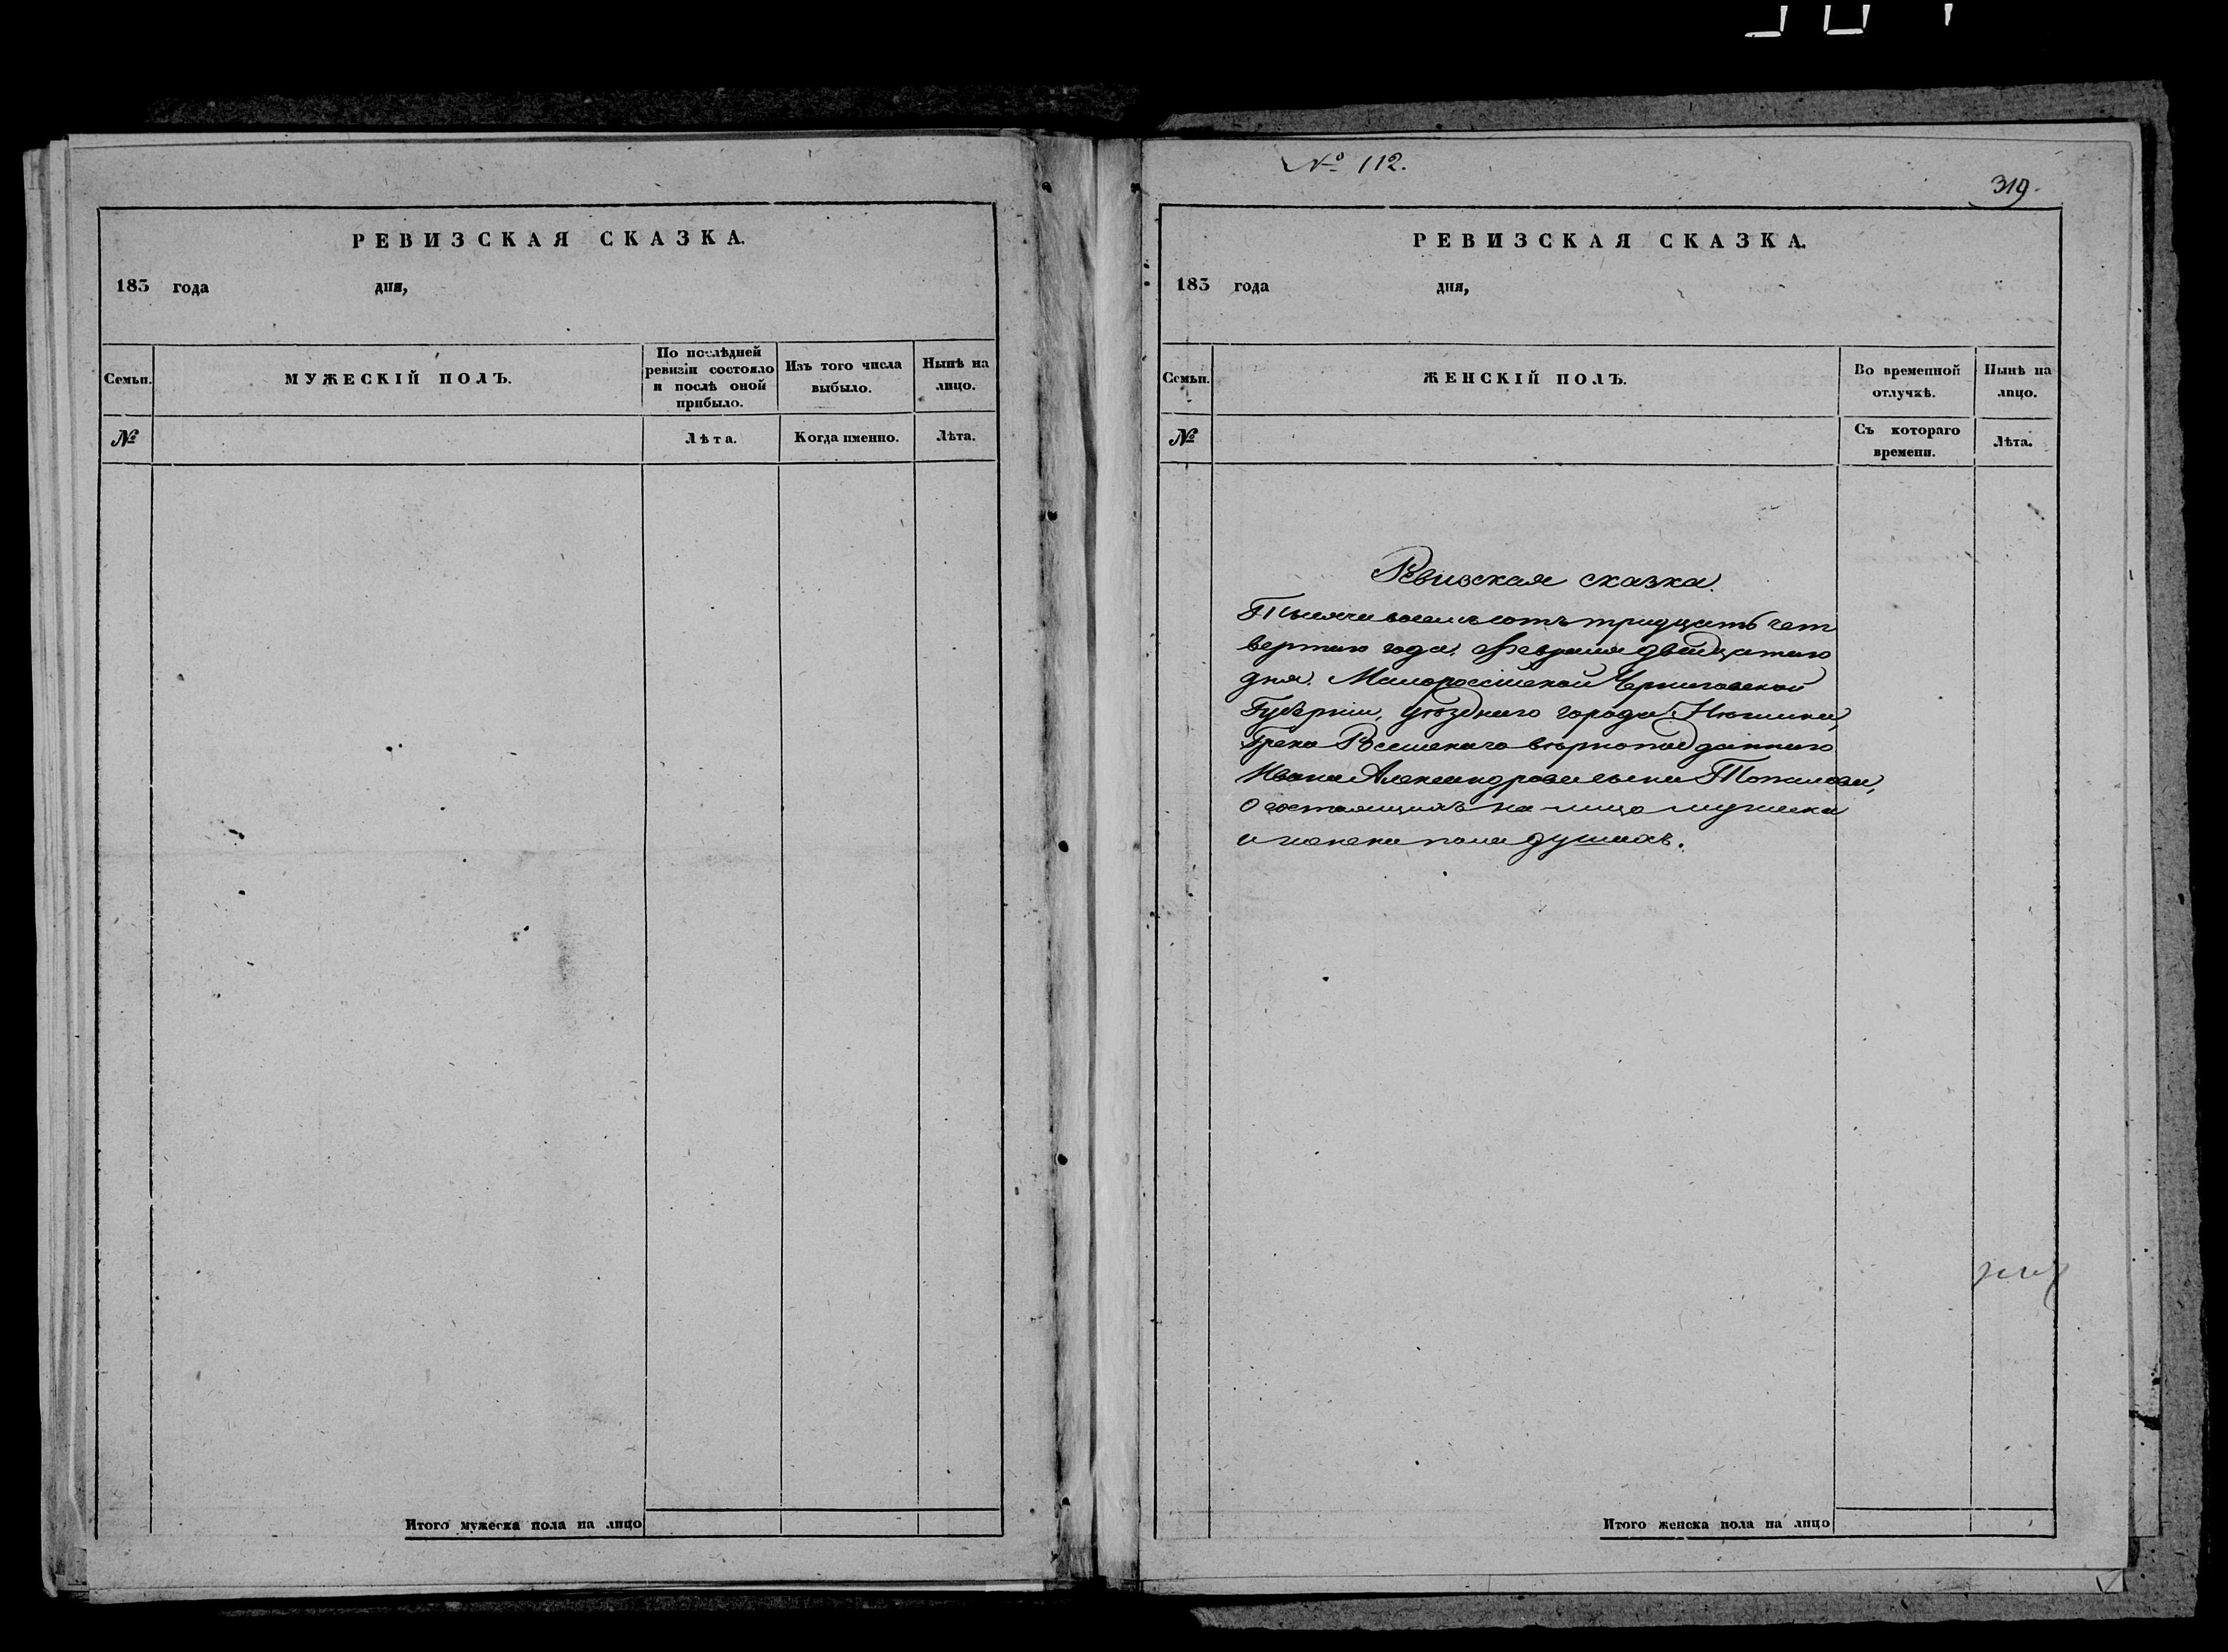 РЕВИЗСКАЯ СКАЗКА.
183 года дня,
Семьи.
МУЖЕСКІЙ ПОЛЪ.
По послѣдней
ревизіи состояло
и послѣ оной
прибыло.
Изъ того числа
выбыло.
Нынѣ на
лицо.
№
Лѣта.
Когда именно.
Лѣта.
Итого мужеска пола на лицо
№ 112.
319.
РЕВИЗСКАЯ СКАЗКА.
183 года дня,
Семьи.
ЖЕНСКІЙ ПОЛЪ.
Во временной
отлучкѣ.
Нынѣ на
лицо.
№
Съ котораго
времени.
Лѣта.
Ревизская сказка.
Тысяча восемъ сотъ тридцать чет
вертаго года. Февраля двадцатаго
дня. Малороссійской Черниговской
Губерніи, уѣзднаго города Нѣжина,
Грека Россійскаго вѣрноподданнаго
Ивана Александрова сына
О состоящихъ на лицо мужеска
и женска пола душахъ.
Итого женска пола на лицо